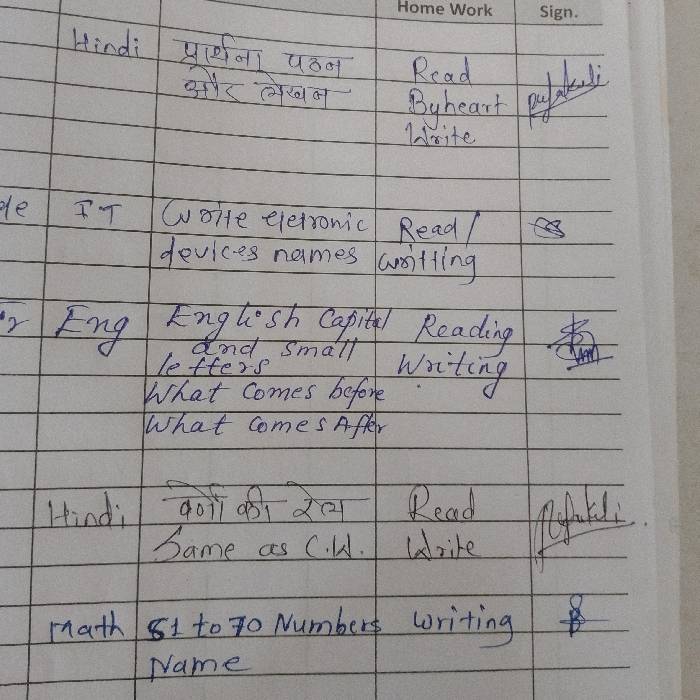 Home Work Sign.
Hindi प्रार्थना पठन Read
और लेखन Byheart
Write
IT Write eletronic Read/
devices names writting
Eng English Capital Reading
and small
letters Writing
What comes before
What comes After
Hindi वर्णों की रेल Read
Same as C.W. Write
math 61 to 70 Numbers writing
Name